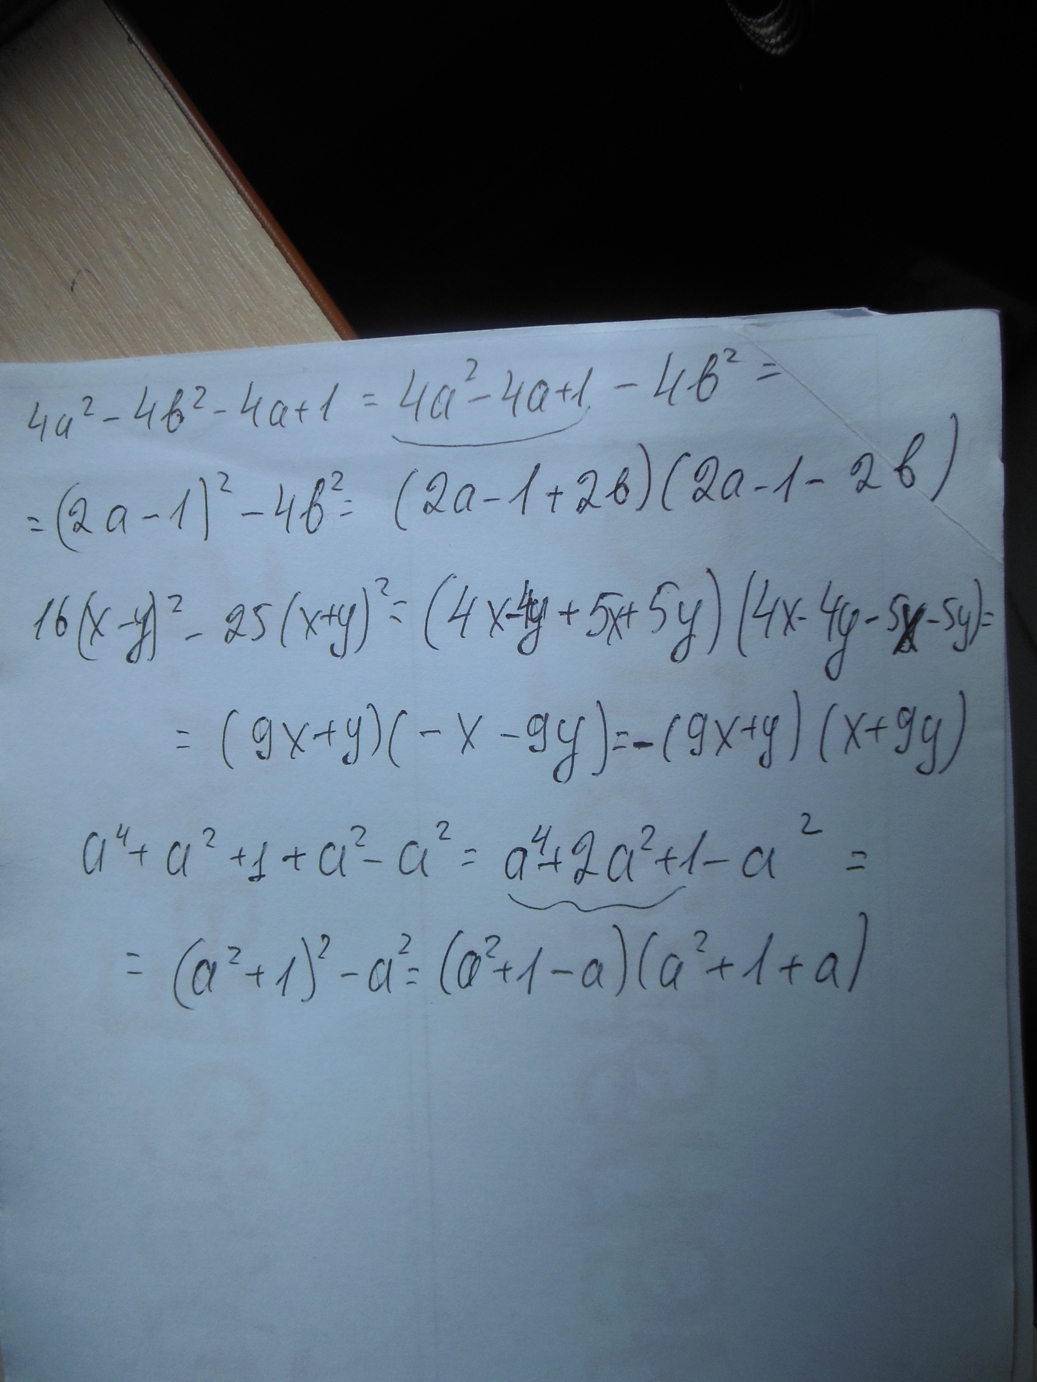 4a² - 4в² - 4a + 1 = 4a² - 4a + 1 - 4в² =
= (2a - 1)² - 4в² = (2a - 1 + 2в)(2a - 1 - 2в)
16(x - y)² - 25(x + y)² = (4x - 4y + 5x + 5y)(4x - 4y - 5x - 5y) =
= (9x + y)(-x - 9y) = -(9x + y)(x + 9y)
a⁴ + a² + 1 + a² - a² = a⁴ + 2a² + 1 - a² =
= (a² + 1)² - a² = (a² + 1 - a)(a² + 1 + a)